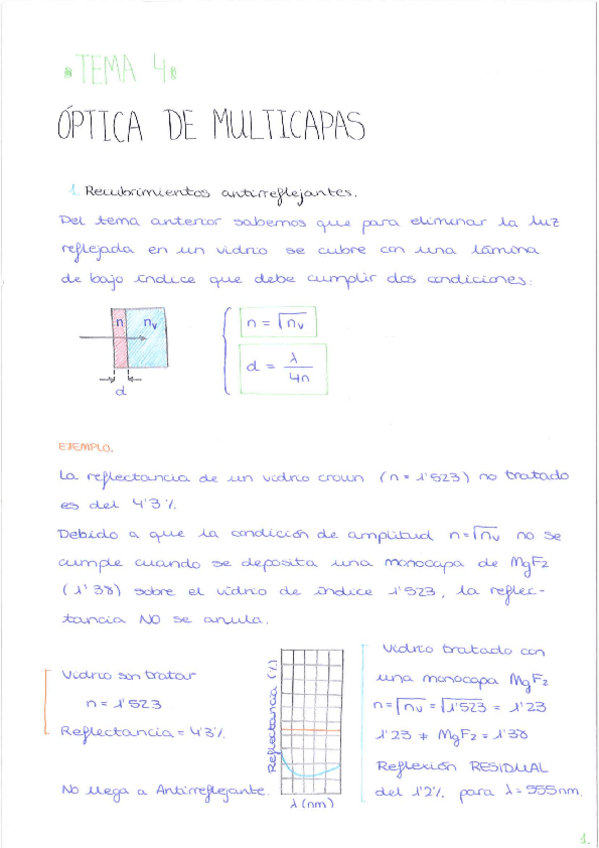 TEMA 4
ÓPTICA DE MULTICAPAS
1. Recubrimientos antirreflejantes.
Del tema anterior sabemos que para eliminar la luz
reflejada en un vidrio se cubre con una lámina
de bajo índice que debe cumplir dos condiciones:
n nv
d
n = √nv
d = λ/4n
EJEMPLO.
La reflectancia de un vidrio crown (n = 1'523) no tratado
es del 4'3%.
Debido a que la condición de amplitud n=√nv no se
cumple cuando se deposita una monocapa de MgF2
(1'38) sobre el vidrio de índice 1'523, la reflec-
tancia NO se anula.
Vidrio sin tratar
n = 1'523
Reflectancia = 4'3%.
No llega a Antirreflejante.
Reflectancia (%)
λ (nm)
Vidrio tratado con
una monocapa MgF2
n=√nv = √1'523 = 1'23
1'23 ≠ MgF2 = 1'38
Reflexión RESIDUAL
del 1'2% para λ=555nm.
1.